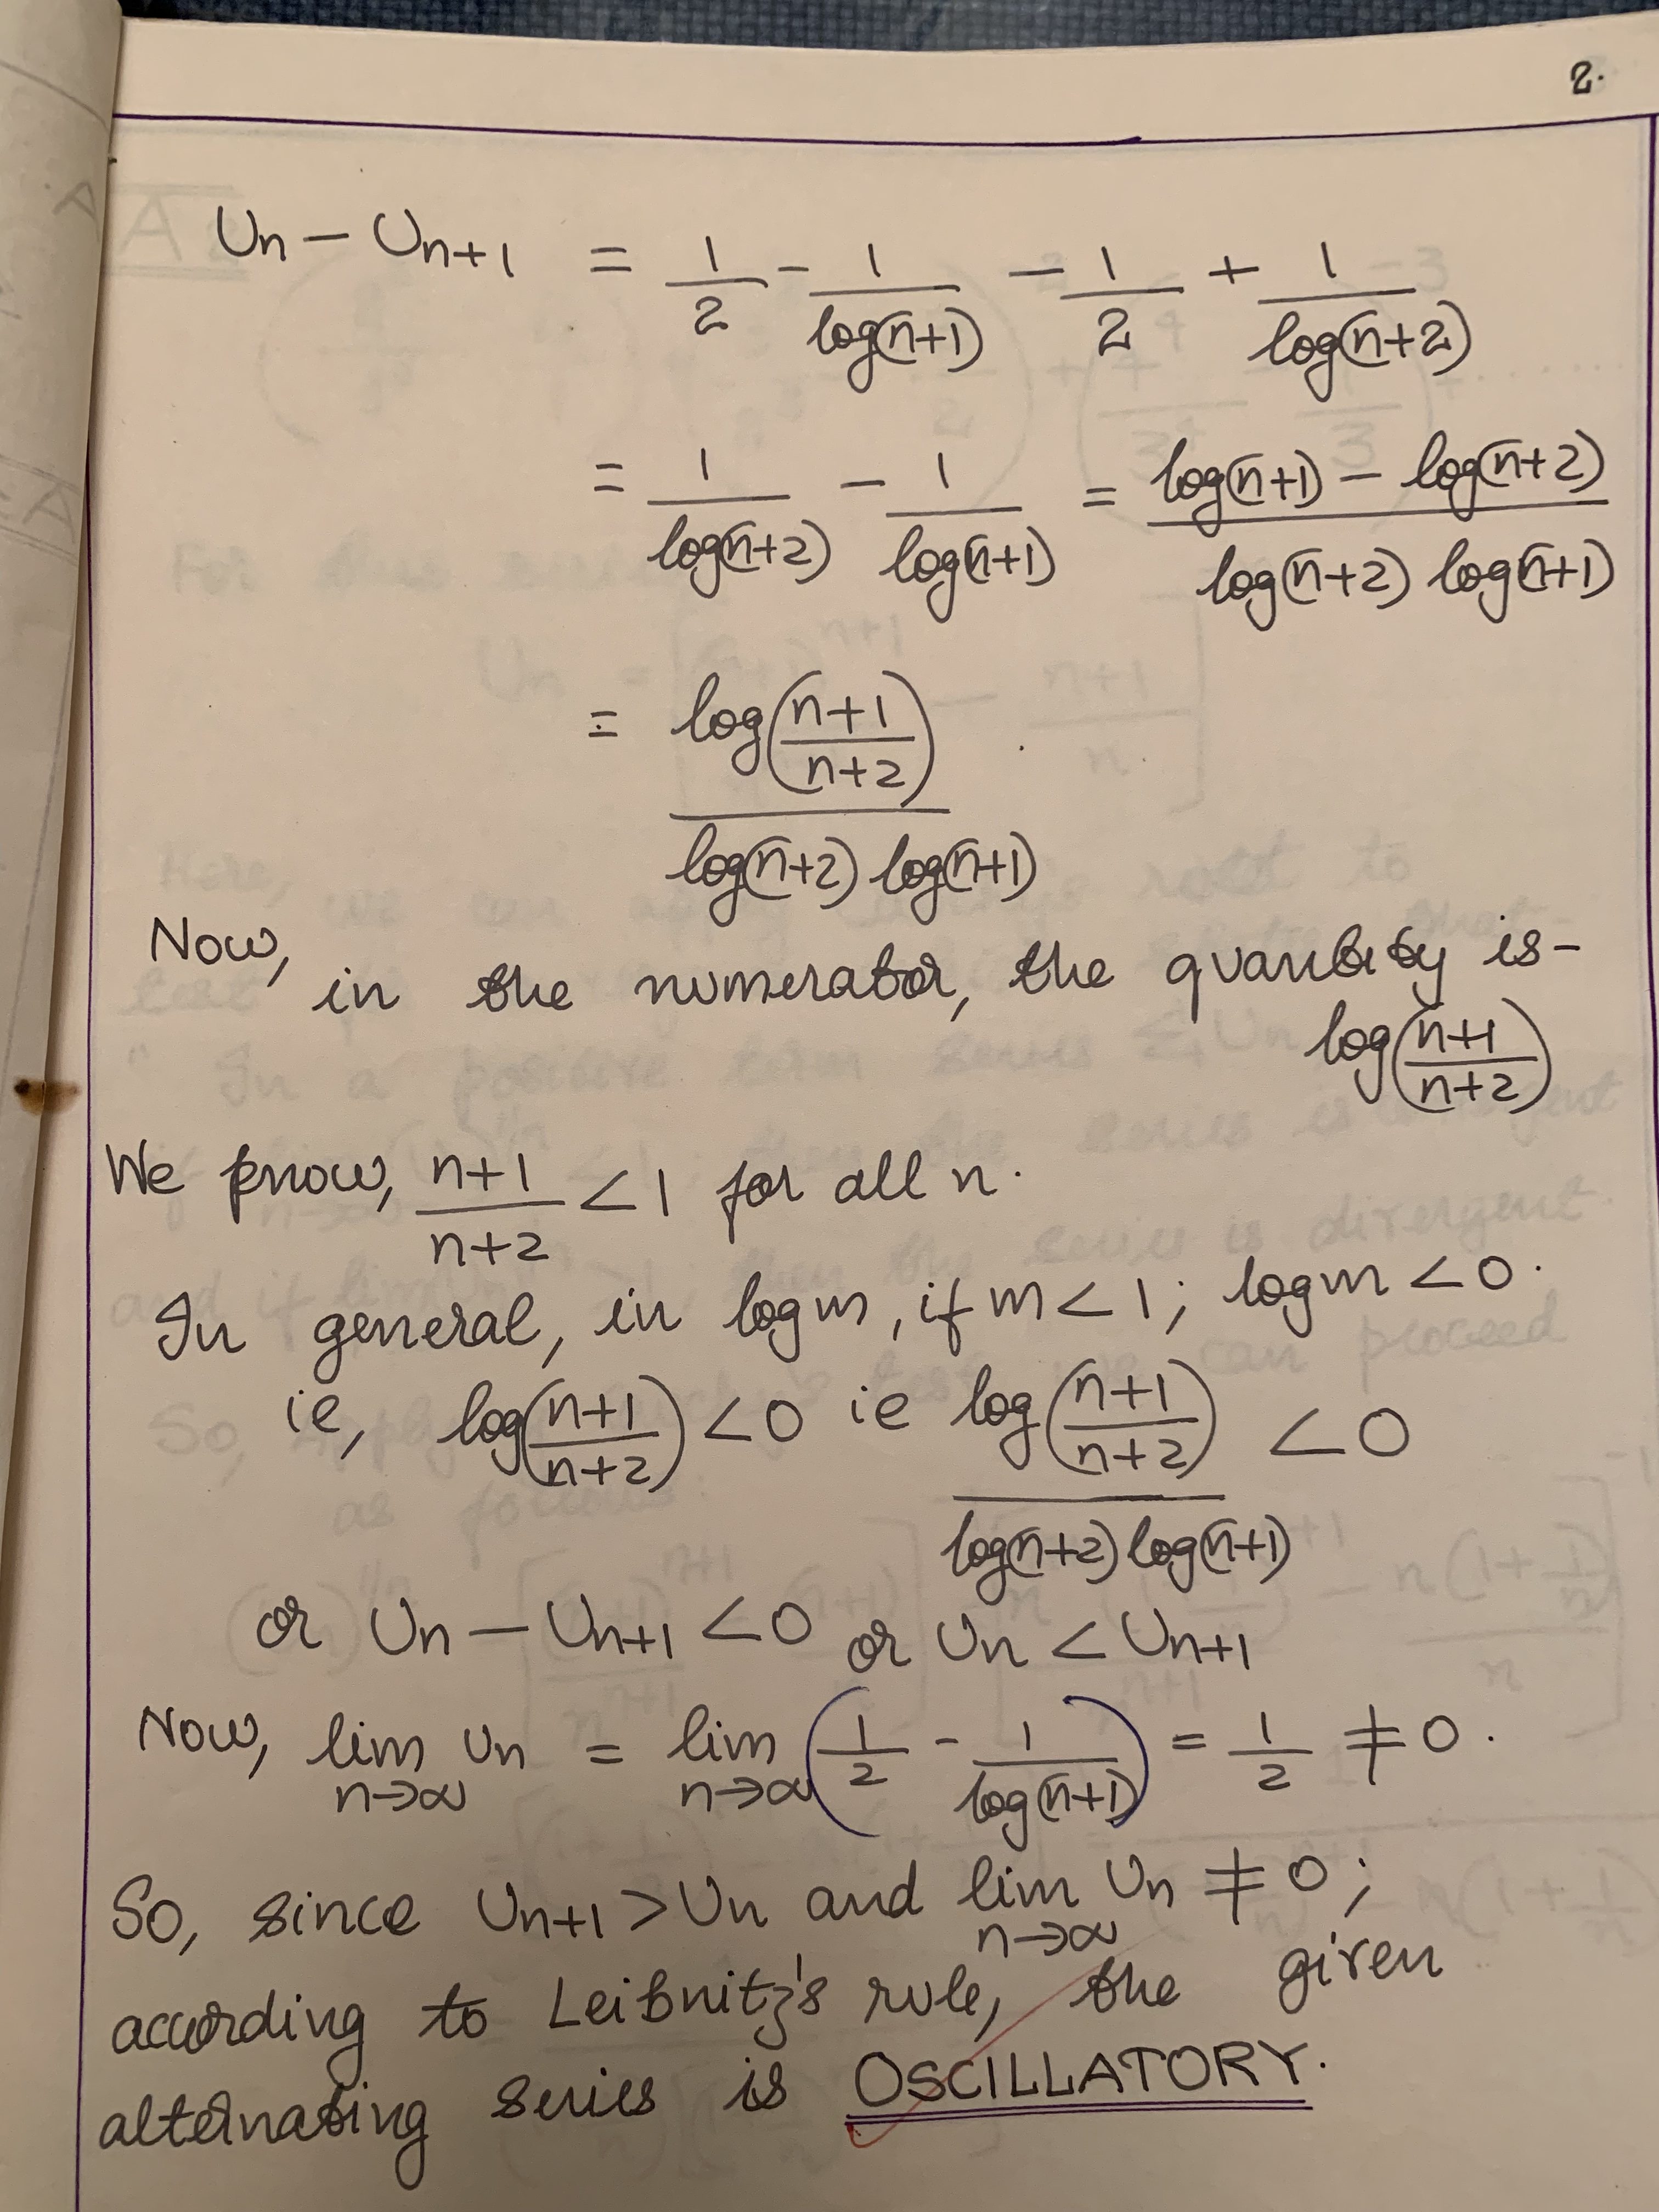 2.
Un − Un+1 = 1/2 − 1/log(n+1) − 1/2 + 1/log(n+2)
= 1/log(n+2) − 1/log(n+1) = (log(n+1) − log(n+2))/(log(n+2) log(n+1))
= log((n+1)/(n+2))/(log(n+2) log(n+1))
Now, in the numerator, the quantity is-
log((n+1)/(n+2))
We know, (n+1)/(n+2) < 1 for all n.
In general, in log m, if m < 1; log m < 0.
ie, log((n+1)/(n+2)) < 0 ie log((n+1)/(n+2))/(log(n+2) log(n+1)) < 0
or Un − Un+1 < 0 or Un < Un+1
Now, lim n→∞ Un = lim n→∞ (1/2 − 1/log(n+1)) = 1/2 ≠ 0.
So, since Un+1 > Un and lim n→∞ Un ≠ 0;
according to Leibnitz's rule, the given
alternating series is OSCILLATORY.